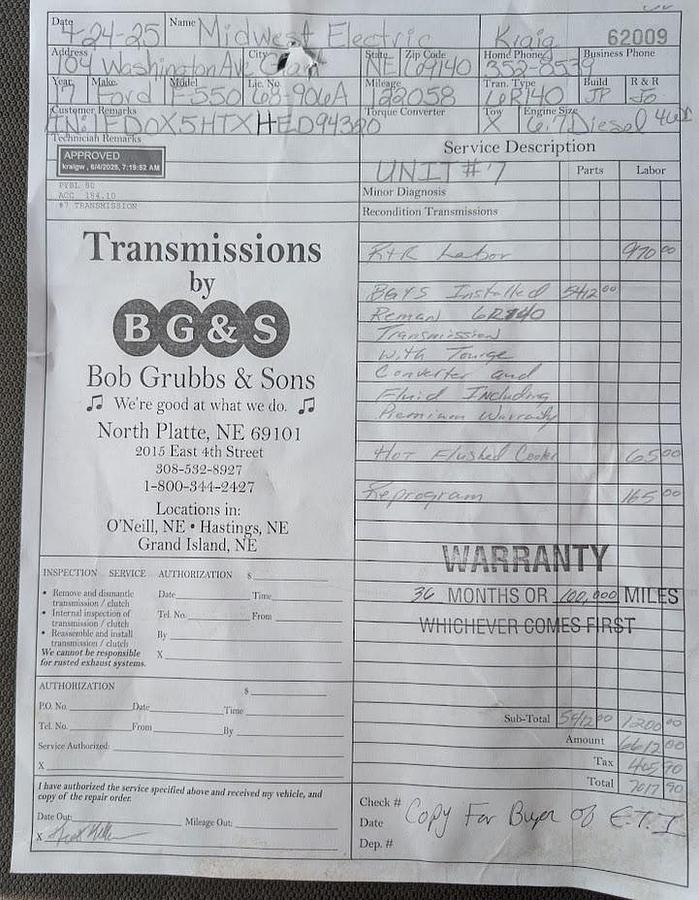 Date 4-24-25 Name Midwest Electric Kraig 62009
Address 104 Washington Ave City Grant State N Zip Code 69140 Home Phone 352-8539 Business Phone
Year 17 Make Ford Model F-550 Lic. No. 68-906A Mileage 22058 Tran. Type 6R140 Build JP R & R Jo
Customer Remarks Torque Converter Tow X Engine Size 6.7 Diesel
Technician Remarks
Service Description
APPROVED
kraigw , 6/4/2025, 7:19:52 AM
PYBL 80
ACC 184.10
#7 TRANSMISSION
UNIT #7 Parts Labor
Minor Diagnosis
Recondition Transmissions
R+R Labor 970 00
BG+S Installed 5412 00
Reman 6R140
Transmission
with Torqe
Converter and
Fluid Including
Premium Warranty
Hot Flushed Cooler 65 00
Reprogram 165 00
WARRANTY
36 MONTHS OR 100,000 MILES
WHICHEVER COMES FIRST
Sub-Total 5412 00 1200 00
Amount 6612 00
Tax 405 90
Total 7017 90
Check #
Date
Dep. #
Copy For Buyer of E.T.I
Transmissions
by
BG&S
Bob Grubbs & Sons
♫ We're good at what we do. ♫
North Platte, NE 69101
2015 East 4th Street
308-532-8927
1-800-344-2427
Locations in:
O'Neill, NE • Hastings, NE
Grand Island, NE
INSPECTION SERVICE AUTHORIZATION $
• Remove and dismantle
transmission / clutch
• Internal inspection of
transmission / clutch
• Reassemble and install
transmission / clutch
We cannot be responsible
for rusted exhaust systems.
Date Time
Tel. No. From
By
X
AUTHORIZATION $
P.O. No. Date Time
Tel. No. From By
Service Authorized:
X
I have authorized the service specified above and received my vehicle, and
copy of the repair order.
Date Out: Mileage Out:
X